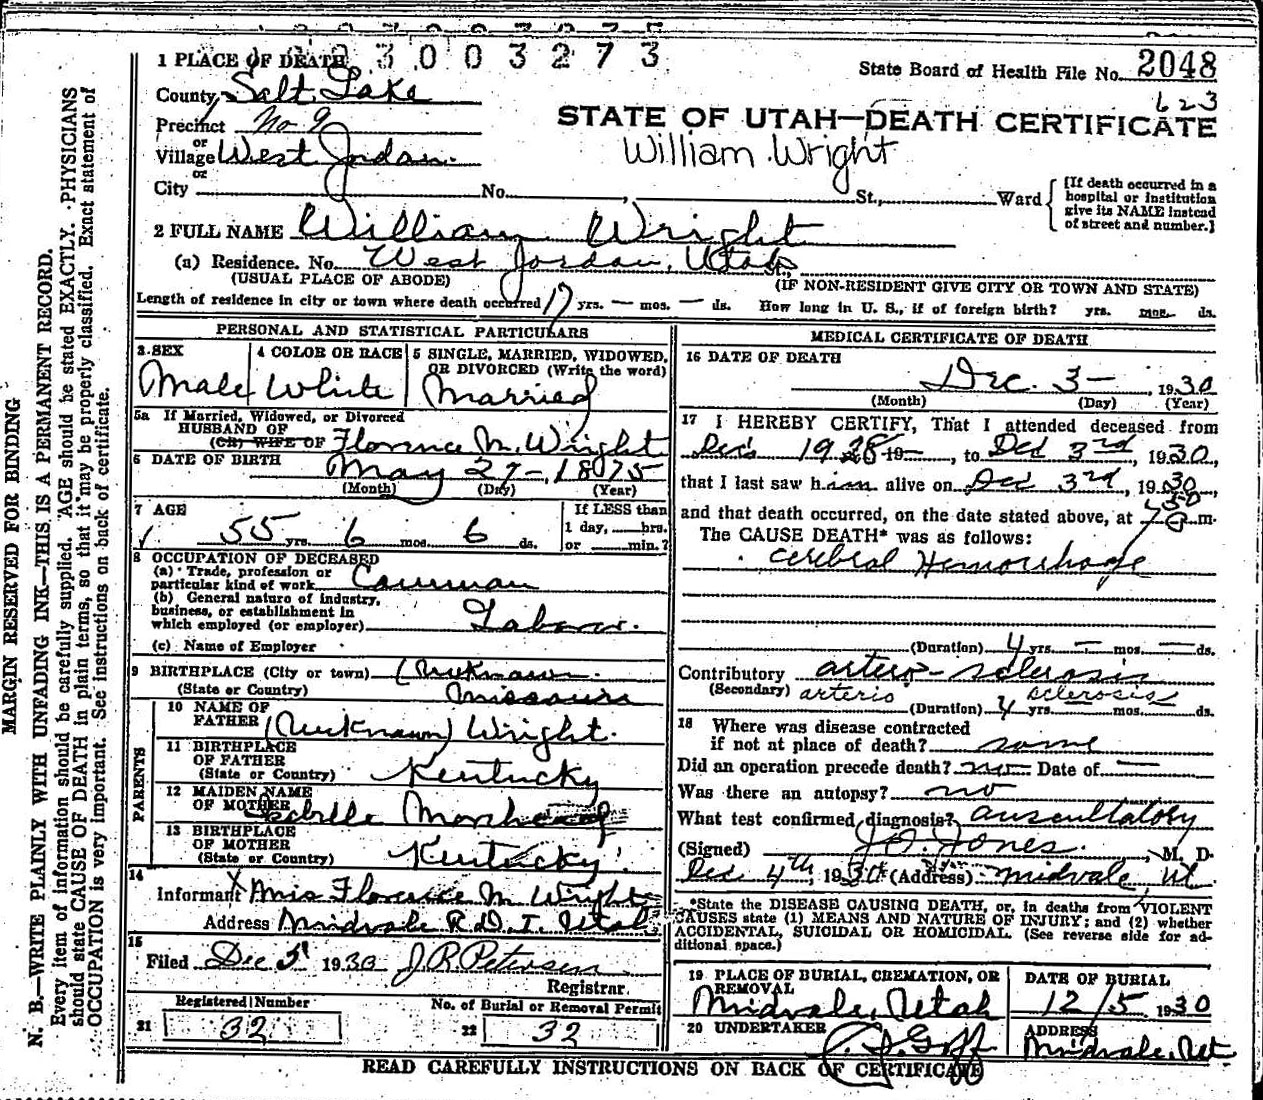 3003273
1 PLACE OF DEATH
State Board of Health File No. 2048
County Salt Lake
623
STATE OF UTAH—DEATH CERTIFICATE
Precinct No 9
William Wright
or
Village West Jordan.
or
City No. , St., Ward
[If death occurred in a
hospital or institution
give its NAME instead
of street and number.]
2 FULL NAME William Wright
(a) Residence. No. West Jordan, Utah St.,
(USUAL PLACE OF ABODE) (IF NON-RESIDENT GIVE CITY OR TOWN AND STATE)
Length of residence in city or town where death occurred 17 yrs. — mos. — ds. How long in U. S., if of foreign birth? yrs. mos. ds.
PERSONAL AND STATISTICAL PARTICULARS
3 SEX
Male
4 COLOR OR RACE
White
5 SINGLE, MARRIED, WIDOWED,
OR DIVORCED (Write the word)
Married
5a If Married, Widowed, or Divorced
HUSBAND OF
(OR) WIFE OF Florence M. Wright
6 DATE OF BIRTH May 27-1875
(Month) (Day) (Year)
7 AGE
55 yrs. 6 mos. 6 ds.
If LESS than
1 day, hrs.
or min.?
8 OCCUPATION OF DECEASED
(a) Trade, profession or
particular kind of work
(b) General nature of industry,
business, or establishment in
which employed (or employer) Labor.
(c) Name of Employer
9 BIRTHPLACE (City or town) (Unknown.
(State or Country) Missouri
PARENTS
10 NAME OF
FATHER (Unknown) Wright.
11 BIRTHPLACE
OF FATHER
(State or Country) Kentucky
12 MAIDEN NAME
OF MOTHER
13 BIRTHPLACE
OF MOTHER
(State or Country) Kentucky
14
Informant Mrs Florence M. Wright
Address Midvale R.D.1, Utah
15
Filed Dec 5 1930 J.R. Petersen
Registrar.
Registered Number
21 32
No. of Burial or Removal Permit
22 32
MEDICAL CERTIFICATE OF DEATH
16 DATE OF DEATH
Dec. 3- 1930
(Month) (Day) (Year)
17 I HEREBY CERTIFY, That I attended deceased from
1928 19—, to Dec 3rd, 1930,
that I last saw him alive on Dec 3rd, 1930,
and that death occurred, on the date stated above, at m.
The CAUSE DEATH* was as follows:
Cerebral Hemorrhage
(Duration) 4 yrs. — mos. — ds.
Contributory arterio-sclerosis
(Secondary) arterio sclerosis
(Duration) 4 yrs. mos. ds.
18 Where was disease contracted
if not at place of death? same
Did an operation precede death? no Date of —
Was there an autopsy? no
What test confirmed diagnosis? auscultatory
(Signed) J.O. Jones., M. D.
Dec 4th, 1930 (Address) midvale, ut
*State the DISEASE CAUSING DEATH, or, in deaths from VIOLENT
CAUSES state (1) MEANS AND NATURE OF INJURY; and (2) whether
ACCIDENTAL, SUICIDAL OR HOMICIDAL. (See reverse side for ad-
ditional space.)
19 PLACE OF BURIAL, CREMATION, OR
REMOVAL
Midvale, Utah
DATE OF BURIAL
12/5 1930
20 UNDERTAKER
Goff
ADDRESS
Midvale, Ut
READ CAREFULLY INSTRUCTIONS ON BACK OF CERTIFICATE
MARGIN RESERVED FOR BINDING
N. B.—WRITE PLAINLY WITH UNFADING INK—THIS IS A PERMANENT RECORD.
Every item of information should be carefully supplied. AGE should be stated EXACTLY. PHYSICIANS
should state CAUSE OF DEATH in plain terms, so that it may be properly classified. Exact statement of
OCCUPATION is very important. See instructions on back of certificate.